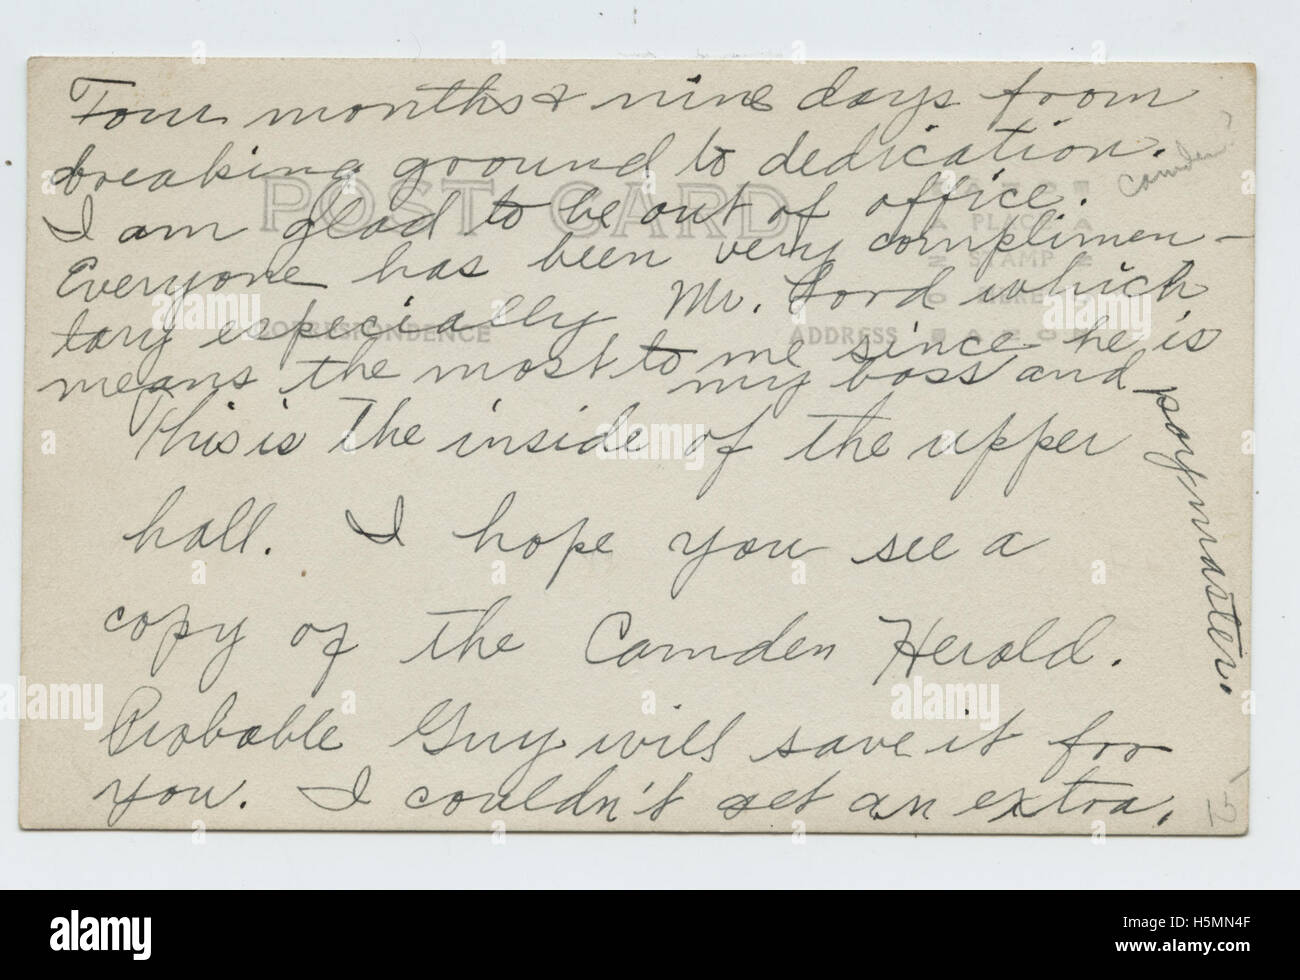 Four months & nine days from
breaking ground to dedication.
Camden?
POST CARD
I am glad to be out of office.
Everyone has been very complimen-
tary especially Mr. Lord which
means the most to me since he is
my boss and paymaster.
CORRESPONDENCE
ADDRESS
PLACE
STAMP
HERE
This is the inside of the upper
hall. I hope you see a
copy of the Camden Herald.
Probable Guy will save it for
you. I couldn't get an extra.
15
alamy
Image ID: H5MN4F
www.alamy.com